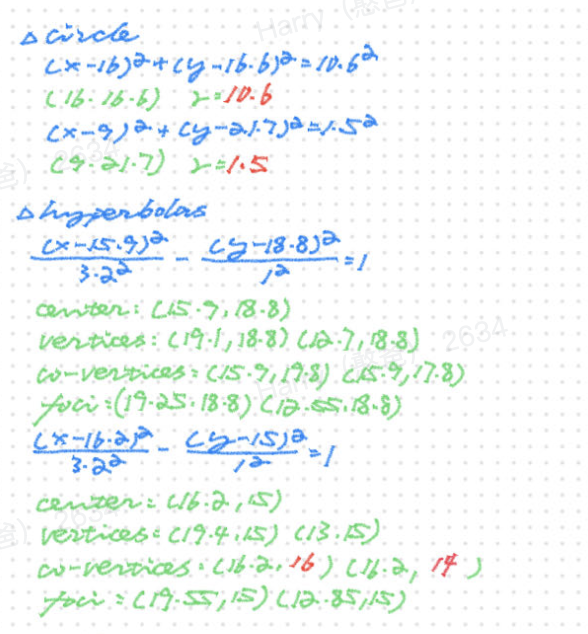 △ circle
(x-16)²+(y-16.6)²=10.6²
(16.16.6) r=10.6
(x-9)²+(y-21.7)²=1.5²
(9.21.7) r=1.5
△ hyperbolas
(x-15.9)²/3.2² - (y-18.8)²/1² =1
center: (15.9,18.8)
vertices: (19.1,18.8) (12.7,18.8)
co-vertices: (15.9,19.8) (15.9,17.8)
foci:(19.25.18.8) (12.55.18.8)
(x-16.2)²/3.2² - (y-15)²/1² =1
center: (16.2,15)
vertices: (19.4.15) (13.15)
co-vertices: (16.2.16) (16.2, 14)
foci: (19.55,15) (12.85,15)